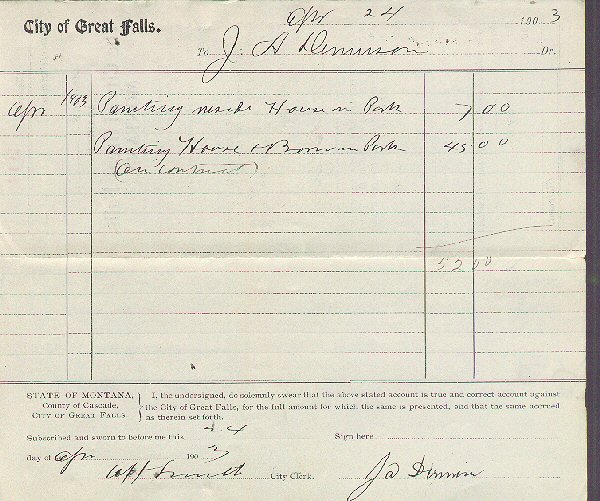 Apr 24 1903
City of Great Falls.
To J. A. Dennison Dr.
Apr 1903 Painting inside House in Park 7 00
Painting House & Barn in Park 45 00
(on contract)
52 00
STATE OF MONTANA,
County of Cascade,
CITY OF GREAT FALLS
I, the undersigned, do solemnly swear that the above stated account is true and correct account against
the City of Great Falls, for the full amount for which the same is presented, and that the same accrued
as therein set forth.
Subscribed and sworn to before me this 24
Sign here
day of Apr 1903
City Clerk.